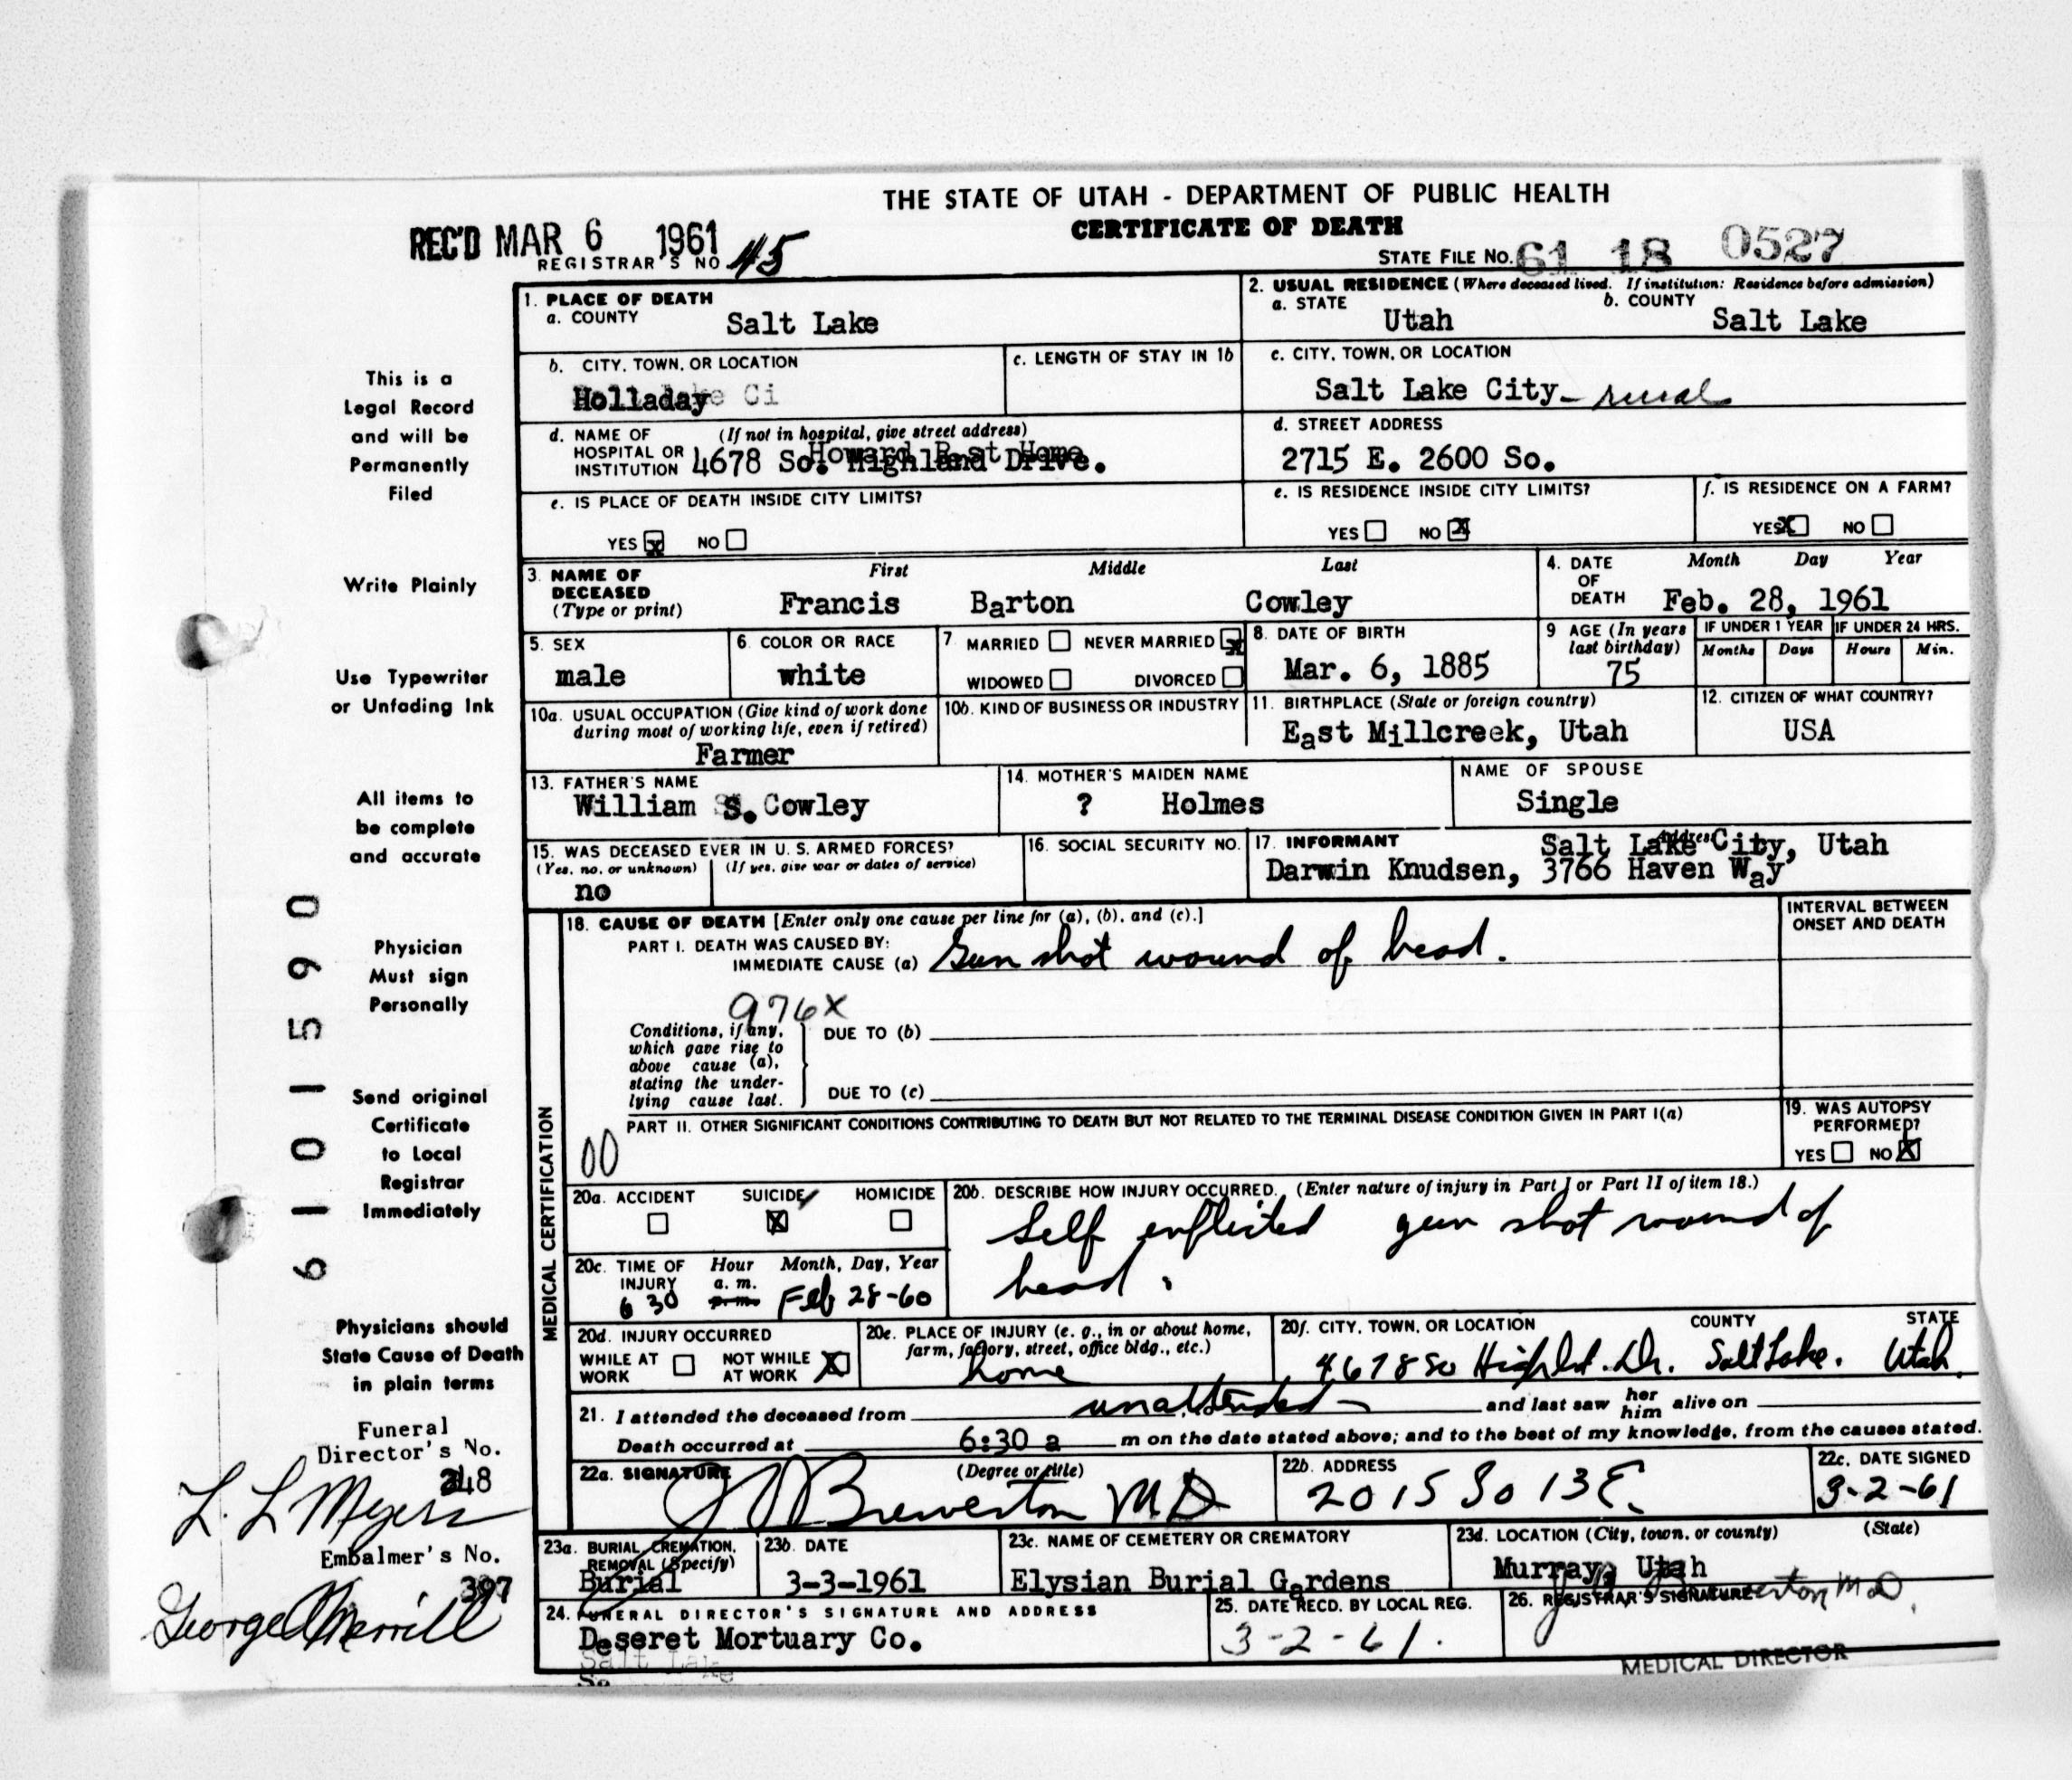 THE STATE OF UTAH - DEPARTMENT OF PUBLIC HEALTH
CERTIFICATE OF DEATH
REC'D MAR 6 1961
REGISTRAR'S NO 45
STATE FILE NO. 61 18 0527
1. PLACE OF DEATH
a. COUNTY Salt Lake
2. USUAL RESIDENCE (Where deceased lived. If institution: Residence before admission)
a. STATE Utah b. COUNTY Salt Lake
b. CITY, TOWN, OR LOCATION Holladay
c. LENGTH OF STAY IN 1b
c. CITY, TOWN, OR LOCATION Salt Lake City - rural
d. NAME OF HOSPITAL OR INSTITUTION (If not in hospital, give street address)
Howard Rest Home
4678 So. Highland Drive.
d. STREET ADDRESS
2715 E. 2600 So.
e. IS PLACE OF DEATH INSIDE CITY LIMITS?
YES X NO
e. IS RESIDENCE INSIDE CITY LIMITS?
YES NO X
f. IS RESIDENCE ON A FARM?
YES X NO
3. NAME OF DECEASED (Type or print)
First Middle Last
Francis Barton Cowley
4. DATE OF DEATH Month Day Year
Feb. 28, 1961
5. SEX
male
6. COLOR OR RACE
white
7 MARRIED NEVER MARRIED X
WIDOWED DIVORCED
8. DATE OF BIRTH
Mar. 6, 1885
9 AGE (In years last birthday)
75
IF UNDER 1 YEAR IF UNDER 24 HRS.
Months Days Hours Min.
10a. USUAL OCCUPATION (Give kind of work done during most of working life, even if retired)
Farmer
10b. KIND OF BUSINESS OR INDUSTRY
11. BIRTHPLACE (State or foreign country)
East Millcreek, Utah
12. CITIZEN OF WHAT COUNTRY?
USA
13. FATHER'S NAME
William S. Cowley
14. MOTHER'S MAIDEN NAME
? Holmes
NAME OF SPOUSE
Single
15. WAS DECEASED EVER IN U. S. ARMED FORCES?
(Yes, no, or unknown) (If yes, give war or dates of service)
no
16. SOCIAL SECURITY NO.
17. INFORMANT Address
Salt Lake City, Utah
Darwin Knudsen, 3766 Haven Way
MEDICAL CERTIFICATION
18. CAUSE OF DEATH [Enter only one cause per line for (a), (b), and (c).]
INTERVAL BETWEEN ONSET AND DEATH
PART I. DEATH WAS CAUSED BY:
IMMEDIATE CAUSE (a) Gun shot wound of head.
976X
Conditions, if any, which gave rise to above cause (a), stating the underlying cause last.
DUE TO (b)
DUE TO (c)
PART II. OTHER SIGNIFICANT CONDITIONS CONTRIBUTING TO DEATH BUT NOT RELATED TO THE TERMINAL DISEASE CONDITION GIVEN IN PART I(a)
00
19. WAS AUTOPSY PERFORMED?
YES NO X
20a. ACCIDENT SUICIDE HOMICIDE
X
20b. DESCRIBE HOW INJURY OCCURRED. (Enter nature of injury in Part I or Part II of item 18.)
Self enflicted gun shot wound of
head.
20c. TIME OF INJURY Hour Month, Day, Year
a. m.
p. m.
6 30 Feb 28-60
20d. INJURY OCCURRED
WHILE AT WORK NOT WHILE AT WORK X
20e. PLACE OF INJURY (e. g., in or about home, farm, factory, street, office bldg., etc.)
home
20f. CITY, TOWN, OR LOCATION COUNTY STATE
4678 So Highld. Dr. Salt Lake. Utah
21. I attended the deceased from unattended and last saw her him alive on
Death occurred at 6:30 a m on the date stated above; and to the best of my knowledge, from the causes stated.
22a. SIGNATURE (Degree or title)
Brewerton MD
22b. ADDRESS
2015 So 13 E.
22c. DATE SIGNED
3-2-61
23a. BURIAL, CREMATION, REMOVAL (Specify)
Burial
23b. DATE
3-3-1961
23c. NAME OF CEMETERY OR CREMATORY
Elysian Burial Gardens
23d. LOCATION (City, town, or county) (State)
Murray, Utah
24. FUNERAL DIRECTOR'S SIGNATURE AND ADDRESS
Deseret Mortuary Co.
Salt Lake
25. DATE RECD. BY LOCAL REG.
3-2-61.
26. REGISTRAR'S SIGNATURE
MEDICAL DIRECTOR
This is a
Legal Record
and will be
Permanently
Filed
Write Plainly
Use Typewriter
or Unfading Ink
All items to
be complete
and accurate
Physician
Must sign
Personally
Send original
Certificate
to Local
Registrar
Immediately
Physicians should
State Cause of Death
in plain terms
Funeral
Director's No.
248
L. L Myers
Embalmer's No.
397
George Merrill
6101590